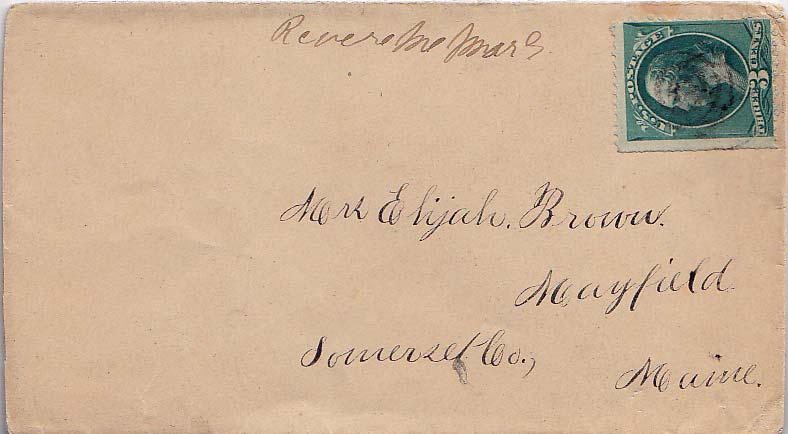 Revere Mo Mar
U.S. POSTAGE
THREE 3 CENTS
Elijah. Brown.
Mayfield.
Somerset Co.,
Maine.